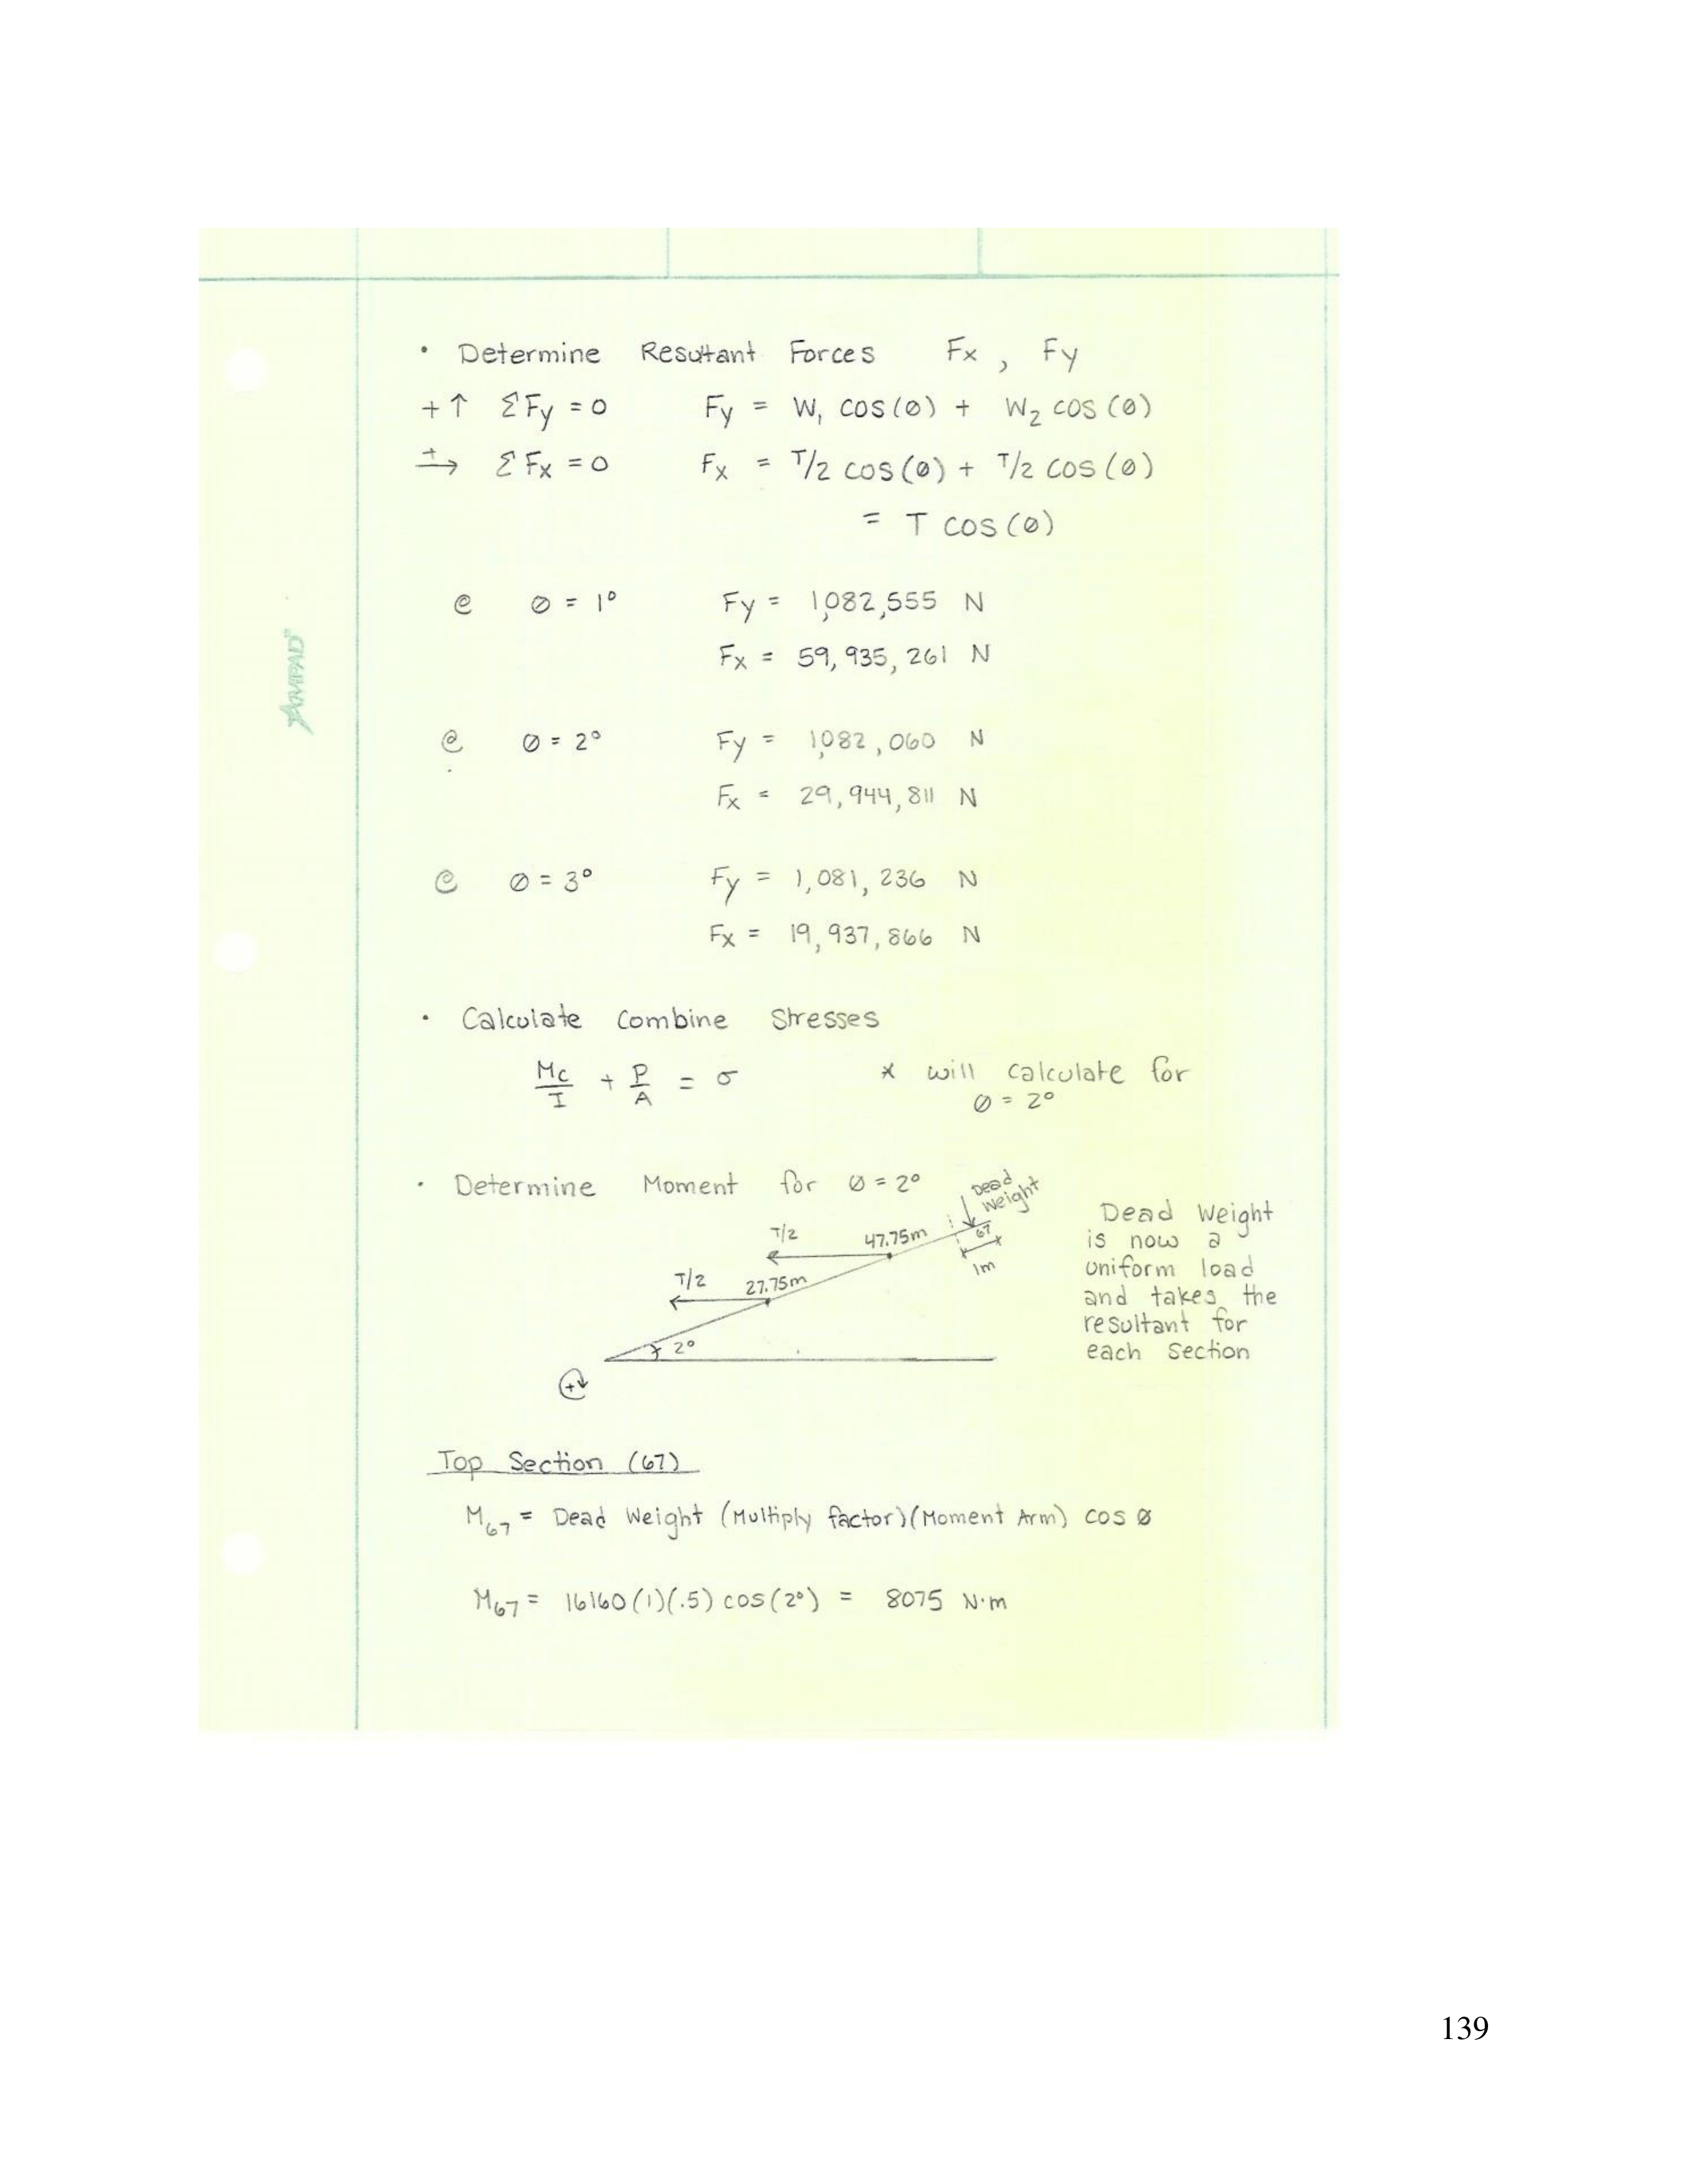 • Determine Resultant Forces Fx , Fy
+↑ ΣFy = 0 Fy = W₁ cos(ø) + W₂ cos(ø)
+→ ΣFx = 0 Fx = T/2 cos(ø) + T/2 cos(ø)
= T cos(ø)
@ ø = 1° Fy = 1,082,555 N
Fx = 59,935,261 N
AMPAD™
@ ø = 2° Fy = 1,082,060 N
Fx = 29,944,811 N
@ ø = 3° Fy = 1,081,236 N
Fx = 19,937,866 N
• Calculate Combine Stresses
Mc/I + P/A = σ * will calculate for
ø = 2°
• Determine Moment for ø = 2°
Dead
Weight
T/2 47.75m 67
1m
T/2 27.75m
2°
+
Dead Weight
is now a
uniform load
and takes the
resultant for
each section
Top Section (67)
M₆₇ = Dead Weight (Multiply factor)(Moment Arm) cos ø
M₆₇ = 16160(1)(.5) cos(2°) = 8075 N·m
139